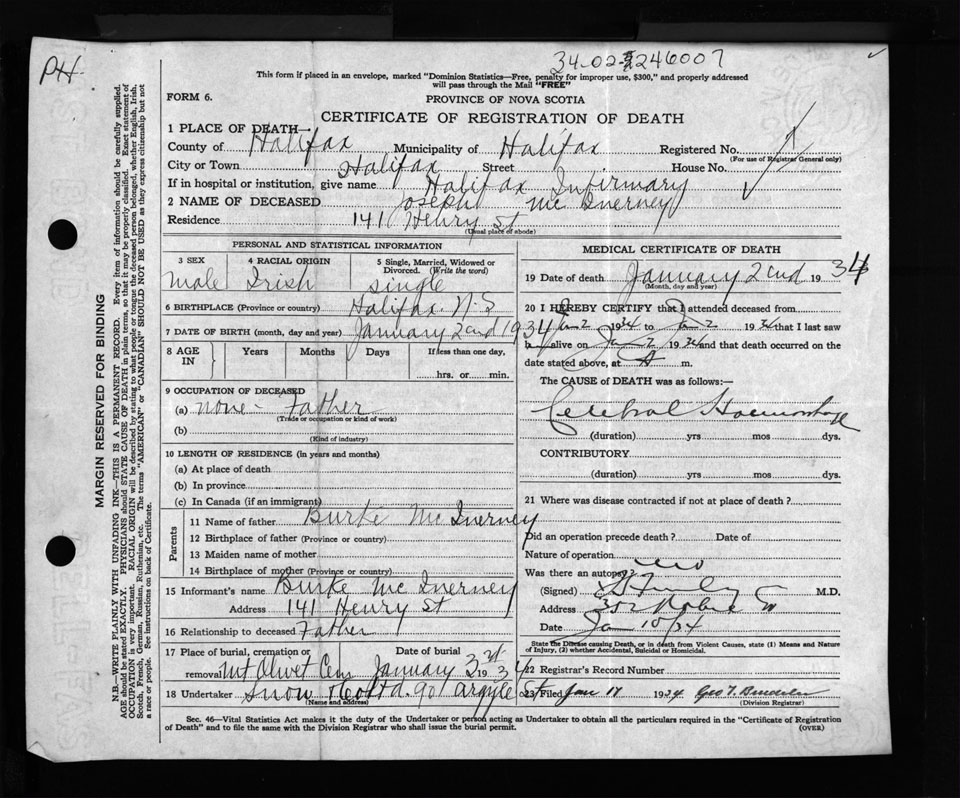 PH.
34-02-246007
This form if placed in an envelope, marked "Dominion Statistics—Free, penalty for improper use, $300," and properly addressed
will pass through the Mail "FREE"
FORM 6.
PROVINCE OF NOVA SCOTIA
CERTIFICATE OF REGISTRATION OF DEATH
1 PLACE OF DEATH—
County of Halifax Municipality of Halifax Registered No.
(For use of Registrar General only)
City or Town Halifax Street House No.
If in hospital or institution, give name Halifax Infirmary
2 NAME OF DECEASED Joseph Mc Inerney
Residence 141 Henry St
(Usual place of abode)
PERSONAL AND STATISTICAL INFORMATION
3 SEX 4 RACIAL ORIGIN 5 Single, Married, Widowed or
Divorced. (Write the word)
Male Irish Single
6 BIRTHPLACE (Province or country) Halifax N.S
7 DATE OF BIRTH (month, day and year) January 2nd 1934
8 AGE IN Years Months Days If less than one day,
hrs. or min.
9 OCCUPATION OF DECEASED
(a) None - Father
(Trade or occupation or kind of work)
(b)
(Kind of industry)
10 LENGTH OF RESIDENCE (in years and months)
(a) At place of death
(b) In province
(c) In Canada (if an immigrant)
Parents
11 Name of father Burke Mc Inerney
12 Birthplace of father (Province or country)
13 Maiden name of mother
14 Birthplace of mother (Province or country)
15 Informant's name Burke Mc Inerney
Address 141 Henry St
16 Relationship to deceased Father
17 Place of burial, cremation or Date of burial
removal Mt Olivet Cem January 3rd 1934
18 Undertaker Snow & Co Ltd 90 Argyle St
(Name and address)
MEDICAL CERTIFICATE OF DEATH
19 Date of death January 2nd 1934
(Month, day and year)
20 I HEREBY CERTIFY that I attended deceased from
Jan 2 1934 to Jan 2 1934 that I last saw
h alive on Jan 2 1934 and that death occurred on the
date stated above, at A m.
The CAUSE of DEATH was as follows:—
Cerebral Haemorrhage
(duration) yrs mos dys.
CONTRIBUTORY
(duration) yrs mos dys.
21 Where was disease contracted if not at place of death?
Did an operation precede death? Date of
Nature of operation
Was there an autopsy No
(Signed) M.D.
Address 302 Robie St
Date Jan 10/34
State the Disease causing Death, or in death from Violent Causes, state (1) Means and Nature
of Injury, (2) whether Accidental, Suicidal or Homicidal.
22 Registrar's Record Number
23 Filed Jan 17 1934 Geo T.
(Division Registrar)
Sec. 46—Vital Statistics Act makes it the duty of the Undertaker or person acting as Undertaker to obtain all the particulars required in the "Certificate of Registration
of Death" and to file the same with the Division Registrar who shall issue the burial permit. (OVER)
MARGIN RESERVED FOR BINDING
N.B.—WRITE PLAINLY WITH UNFADING INK—THIS IS A PERMANENT RECORD. Every item of information should be carefully supplied.
AGE should be stated EXACTLY. PHYSICIANS should STATE CAUSE OF DEATH in plain terms, so that it may be properly classified. Exact statement of
OCCUPATION is very important. RACIAL ORIGIN will be described by stating to what people or tongue the deceased person belonged, whether English, Irish,
Scotch, French, German, Russian, Ruthenian, etc. The terms "AMERICAN" or "CANADIAN" SHOULD NOT BE USED as they express citizenship but not
a race or people. See instructions on back of Certificate.